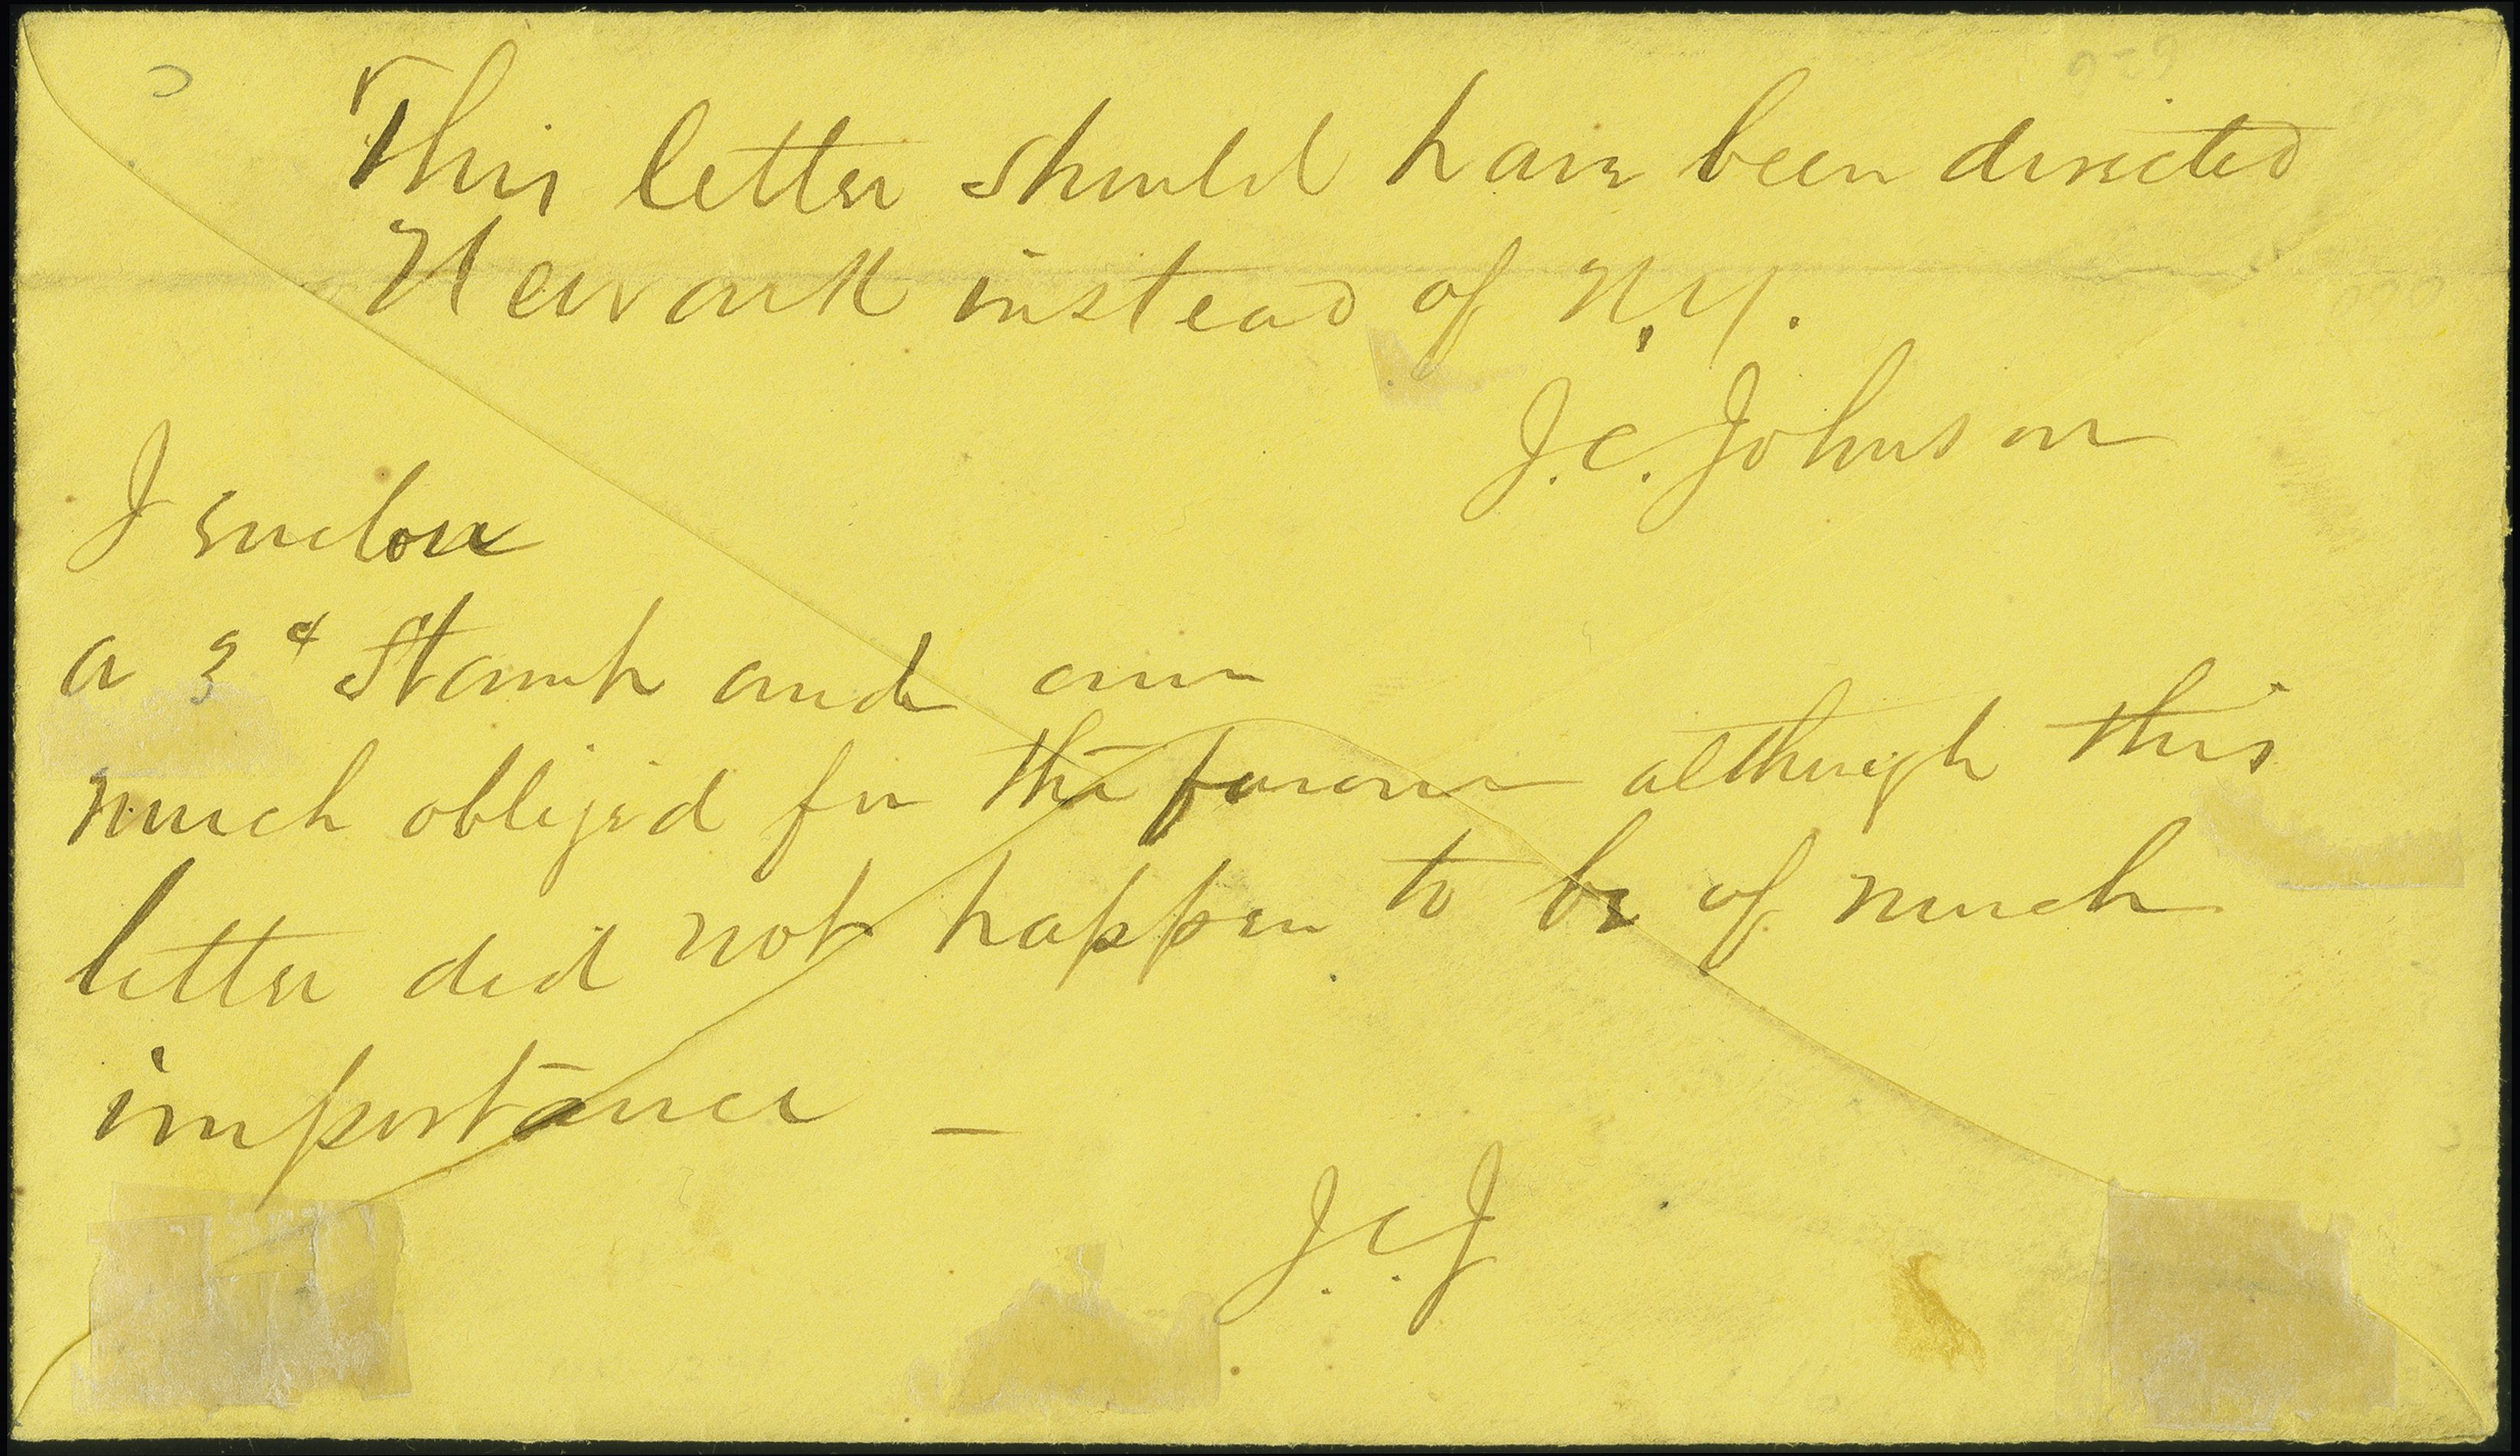 This letter should have been directed
Newark instead of N.Y.
J.C. Johnson
I enclose
a 3¢ Stamp and am
much obliged for the favour although this
letter did not happen to be of much
importance —
J.C.J